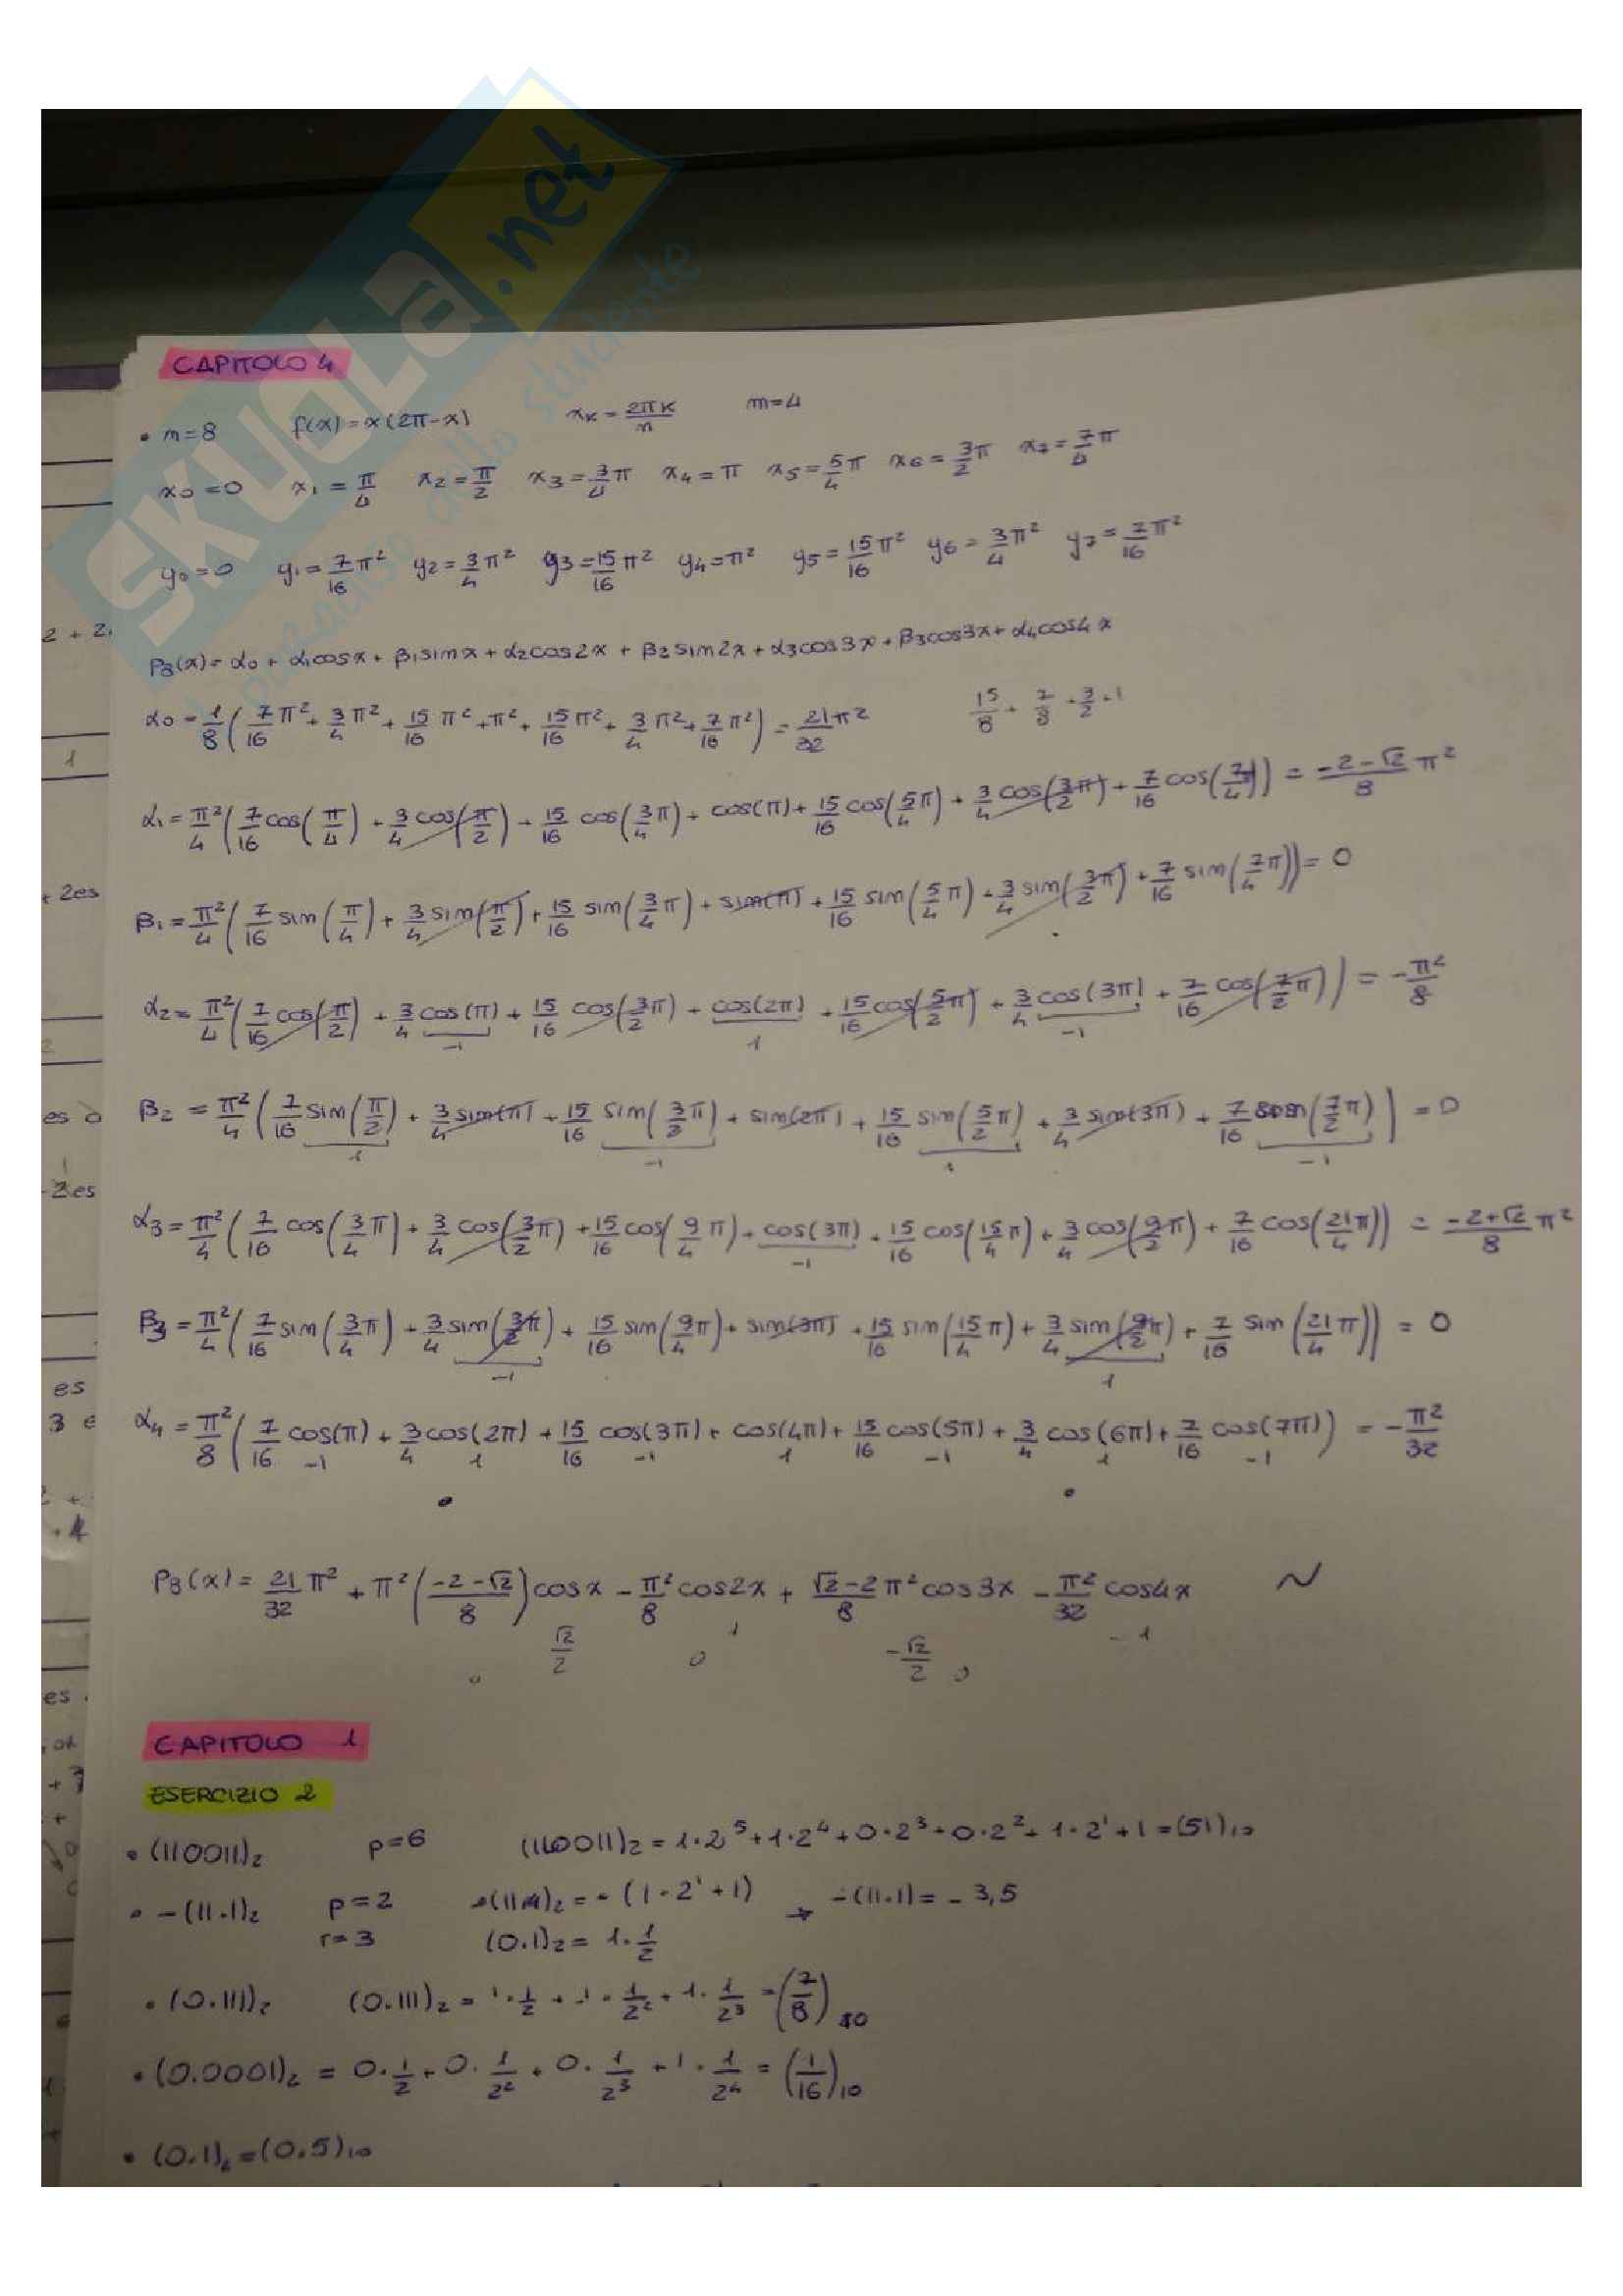 SKUOLA.net
il paradiso dello studente
CAPITOLO 4
• m=8 f(x)=x(2π-x) xₖ=2πK/n m=4
x₀=0 x₁=π/4 x₂=π/2 x₃=3/4π x₄=π x₅=5/4π x₆=3/2π x₇=7/4π
y₀=0 y₁=7/16π² y₂=3/4π² y₃=15/16π² y₄=π² y₅=15/16π² y₆=3/4π² y₇=7/16π²
P₈(x)=α₀+α₁cosx+β₁sinx+α₂cos2x+β₂sin2x+α₃cos3x+β₃cos3x+α₄cos4x
α₀=1/8(7/16π²+3/4π²+15/16π²+π²+15/16π²+3/4π²+7/16π²)=21π²/32 15/8+7/8+3/2+1
α₁=π²/4(7/16cos(π/4)+3/4cos(π/2)+15/16cos(3/4π)+cos(π)+15/16cos(5/4π)+3/4cos(3/2π)+7/16cos(7/4))=-2-√2/8π²
β₁=π²/4(7/16sin(π/4)+3/4sin(π/2)+15/16sin(3/4π)+sin(π)+15/16sin(5/4π)+3/4sin(3/2π)+7/16sin(7/4π))=0
α₂=π²/4(7/16cos(π/2)+3/4cos(π)+15/16cos(3/2π)+cos(2π)+15/16cos(5/2π)+3/4cos(3π)+7/16cos(7/2π))=-π²/8
-1 1 -1
β₂=π²/4(7/16sin(π/2)+3/4sin(π)+15/16sin(3/2π)+sin(2π)+15/16sin(5/2π)+3/4sin(3π)+7/16sen(7/2π))=0
1 -1 1 -1
α₃=π²/4(7/16cos(3/4π)+3/4cos(3/2π)+15/16cos(9/4π)+cos(3π)+15/16cos(15/4π)+3/4cos(9/2π)+7/16cos(21/4π))=-2+√2/8π²
-1
β₃=π²/4(7/16sin(3/4π)+3/4sin(3/2π)+15/16sin(9/4π)+sin(3π)+15/16sin(15/4π)+3/4sin(9/2π)+7/16sin(21/4π))=0
-1 1
α₄=π²/8(7/16cos(π)+3/4cos(2π)+15/16cos(3π)+cos(4π)+15/16cos(5π)+3/4cos(6π)+7/16cos(7π))=-π²/32
-1 1 -1 1 -1 1 -1
P₈(x)=21/32π²+π²(-2-√2/8)cosx-π²/8cos2x+√2-2/8π²cos3x-π²/32cos4x ~
√2/2 0 -√2/2 -1
CAPITOLO 1
ESERCIZIO 2
• (110011)₂ p=6 (110011)₂=1·2⁵+1·2⁴+0·2³+0·2²+1·2¹+1=(51)₁₀
• -(11.1)₂ p=2 -(11.1)₂=-(1·2¹+1) → -(11.1)=-3,5
r=3 (0.1)₂=1·1/2
• (0.111)₂ (0.111)₂=1·1/2+1·1/2²+1·1/2³=(7/8)₁₀
• (0.0001)₂=0·1/2+0·1/2²+0·1/2³+1·1/2⁴=(1/16)₁₀
• (0.1)₂=(0.5)₁₀